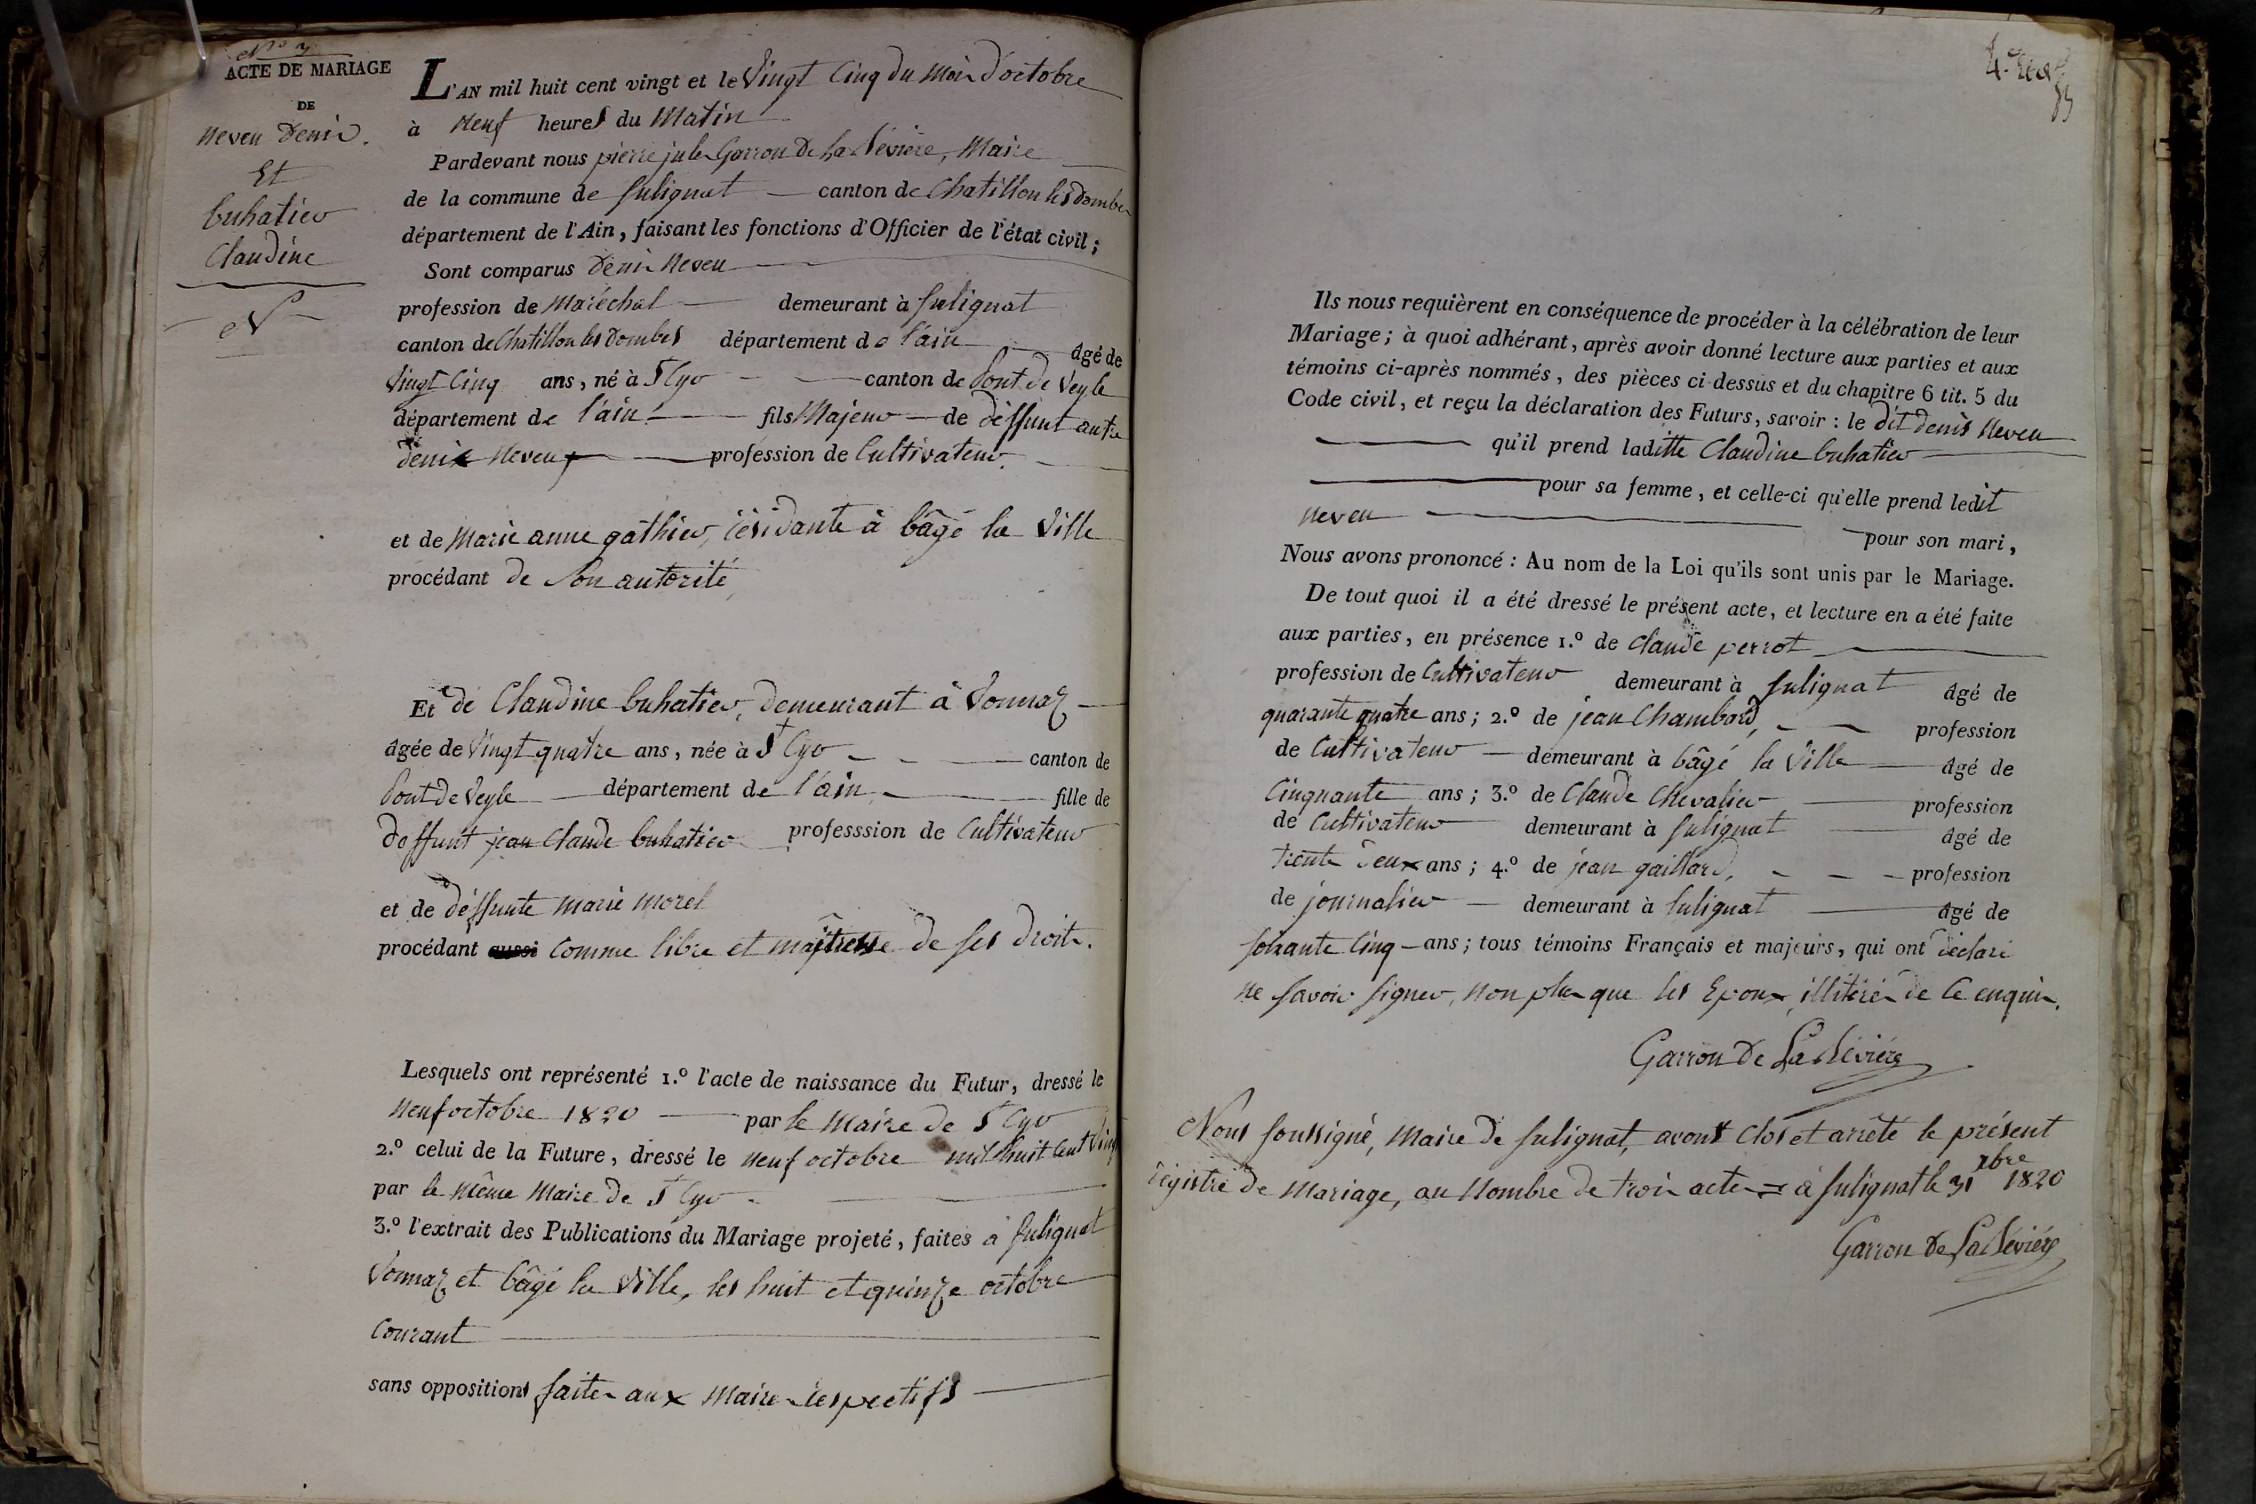 N.o 3
ACTE DE MARIAGE
DE
neveu Denis.
Et
buhatier
Claudine
N
L'AN mil huit cent vingt et le Vingt Cinq du Mois d'octobre
à Neuf heures du Matin
Pardevant nous pierre jules Garron De La Bévière, Maire
de la commune de Sulignat canton de Chatillon les Dombes
département de l'Ain, faisant les fonctions d'Officier de l'état civil;
Sont comparus Denis Neveu
profession de Maréchal demeurant à Sulignat
canton de Chatillon les Dombes département de l'ain âgé de
Vingt Cinq ans, né à St Cyr canton de Pont de Veyle
département de l'ain fils Majeur de déffunt autre
denis Neveu profession de Cultivateur
et de Marie anne gathier, résidante à bâgé la Ville
procédant de Son autorité
Et de Claudine buhatier, demeurant à Vonnaz
âgée de Vingt quatre ans, née à St Cyr canton de
Pont de Veyle département de l'ain fille de
deffunt jean Claude buhatier professsion de Cultivateur
et de déffunte marie morel
procédant aussi comme libre et maîtresse de ses droits.
Lesquels ont représenté 1.o l'acte de naissance du Futur, dressé le
Neuf octobre 1820 par le Maire de St Cyr
2.o celui de la Future, dressé le neuf octobre mil huit Cent Vingt
par le même Maire de St Cyr
3.o l'extrait des Publications du Mariage projeté, faites à Sulignat
Vonnaz et bâgé la Ville, les huit et quinze octobre
Courant
sans oppositions faites aux Maires respectifs
Ils nous requièrent en conséquence de procéder à la célébration de leur
Mariage; à quoi adhérant, après avoir donné lecture aux parties et aux
témoins ci-après nommés, des pièces ci dessus et du chapitre 6 tit. 5 du
Code civil, et reçu la déclaration des Futurs, savoir: le dit denis Neveu
qu'il prend laditte Claudine buhatier
pour sa femme, et celle-ci qu'elle prend ledit
neveu pour son mari,
Nous avons prononcé: Au nom de la Loi qu'ils sont unis par le Mariage.
De tout quoi il a été dressé le présent acte, et lecture en a été faite
aux parties, en présence 1.o de claude perrot
profession de Cultivateur demeurant à Sulignat âgé de
quarante quatre ans; 2.o de jean Chambard, profession
de Cultivateur demeurant à bâgé la Ville âgé de
Cinquante ans; 3.o de Claude Chevalier profession
de Cultivateur demeurant à Sulignat âgé de
trente deux ans; 4.o de jean gaillard, profession
de journalier demeurant à Sulignat âgé de
soixante Cinq ans; tous témoins Français et majeurs, qui ont déclaré
ne Savoir Signer, non plus que les Epoux, illitérés de Ce enquis.
Garron De La Bévière
Nous Soussigné, Maire de Sulignat, avons Clos et arrêté le présent
régistre de Mariage, au Nombre de trois actes = à Sulignat le 31 xbre 1820
Garron De La Bévière